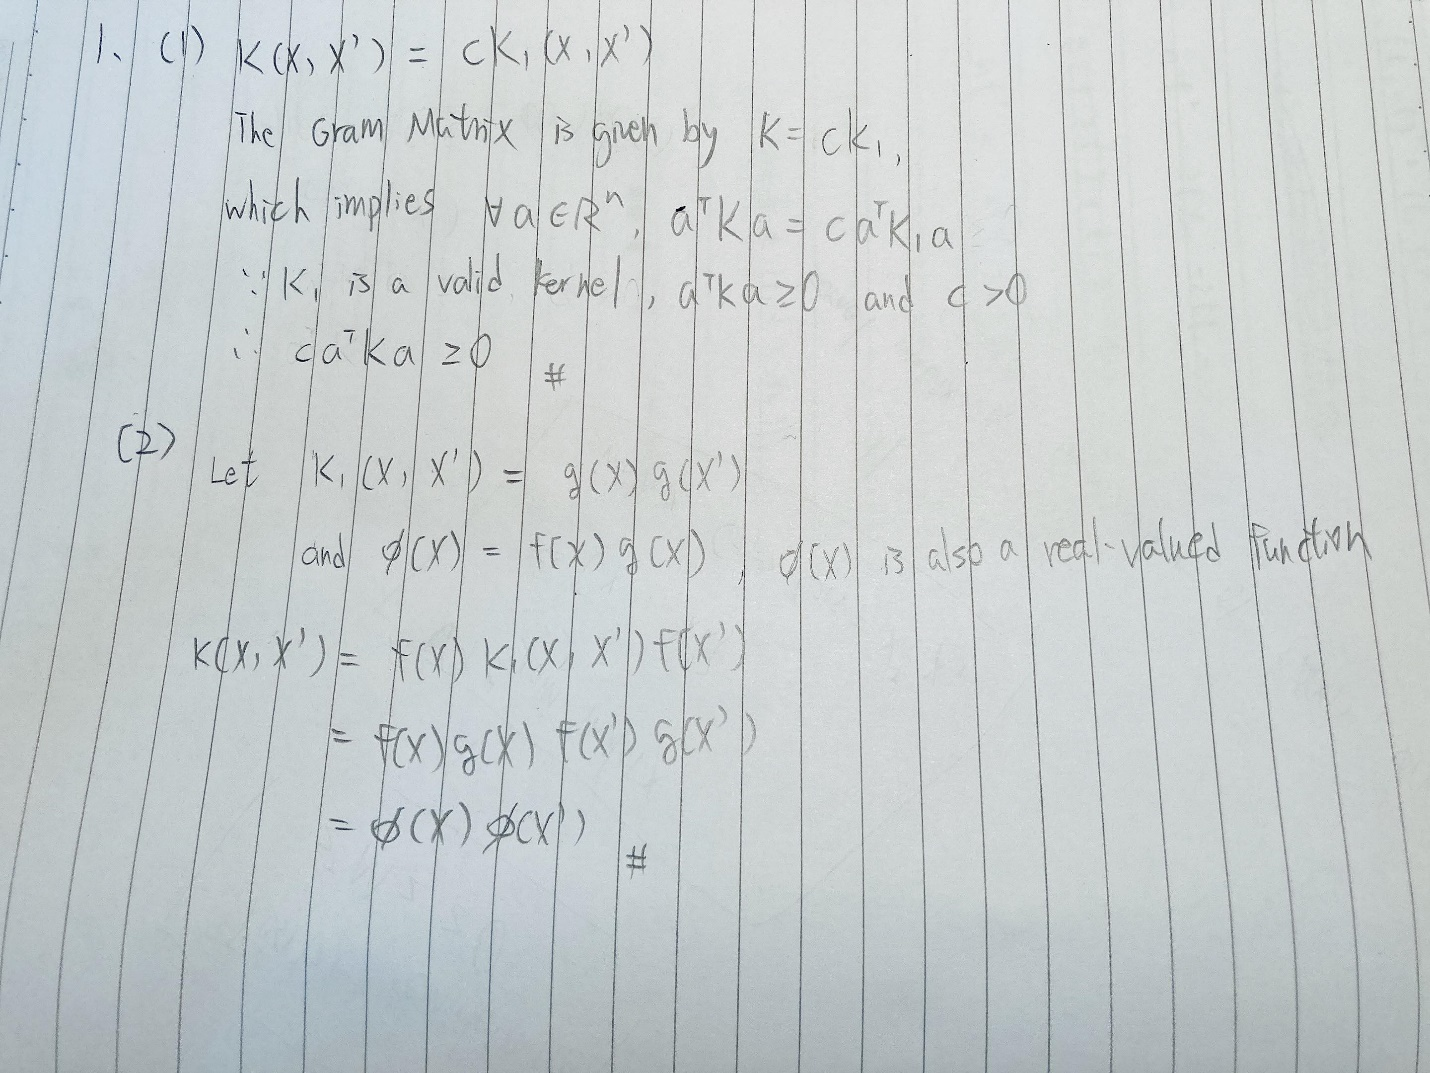 1. (1) K(X, X') = cK₁(X, X')
The Gram Matrix is given by K = cK₁,
which implies ∀a∈Rⁿ, aᵀKa = caᵀK₁a
∵ K₁ is a valid kernel, aᵀKa≥0 and c>0
∴ caᵀKa ≥0 #
(2)
Let K₁(X, X') = g(X) g(X')
and ϕ(X) = f(X) g(X), ϕ(X) is also a real-valued function
K(X, X') = f(X) K₁(X, X') f(X')
= f(X) g(X) f(X') g(X')
= ϕ(X) ϕ(X') #